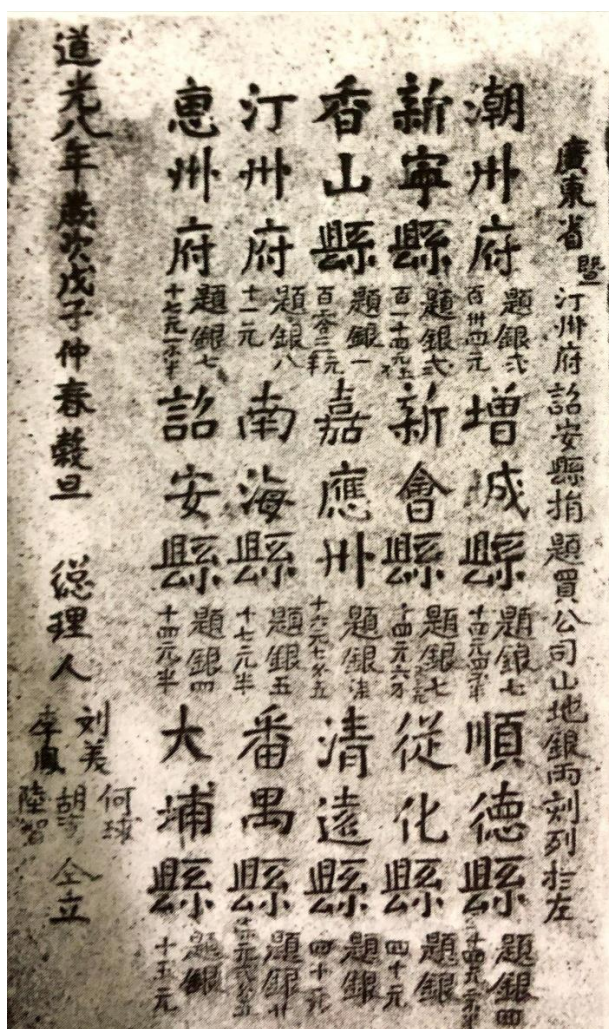 廣東省暨汀州府詔安縣捐題買公司山地銀兩刻列於左
潮州府題銀弍百卅四元 增城縣題銀七十四元 順德縣題銀四十四元
新寧縣題銀弍百一十四元五 新會縣題銀七十四元六 從化縣題銀四十元
香山縣題銀一百零三元半 嘉應州題銀十六元七 清遠縣題銀四十元
汀州府題銀八十一元 南海縣題銀五十七元半 番禺縣題銀廿
惠州府題銀七十七元一 詔安縣題銀四十四元半 大埔縣題銀十五元
道光八年歲次戊子仲春穀旦 総理人 何 刘美 胡 李鳳 陸智 仝立